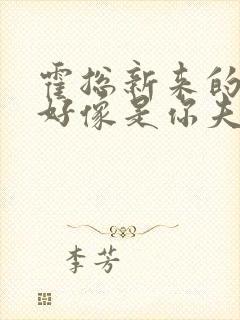 霍总新来的
好像是你夫
李芳